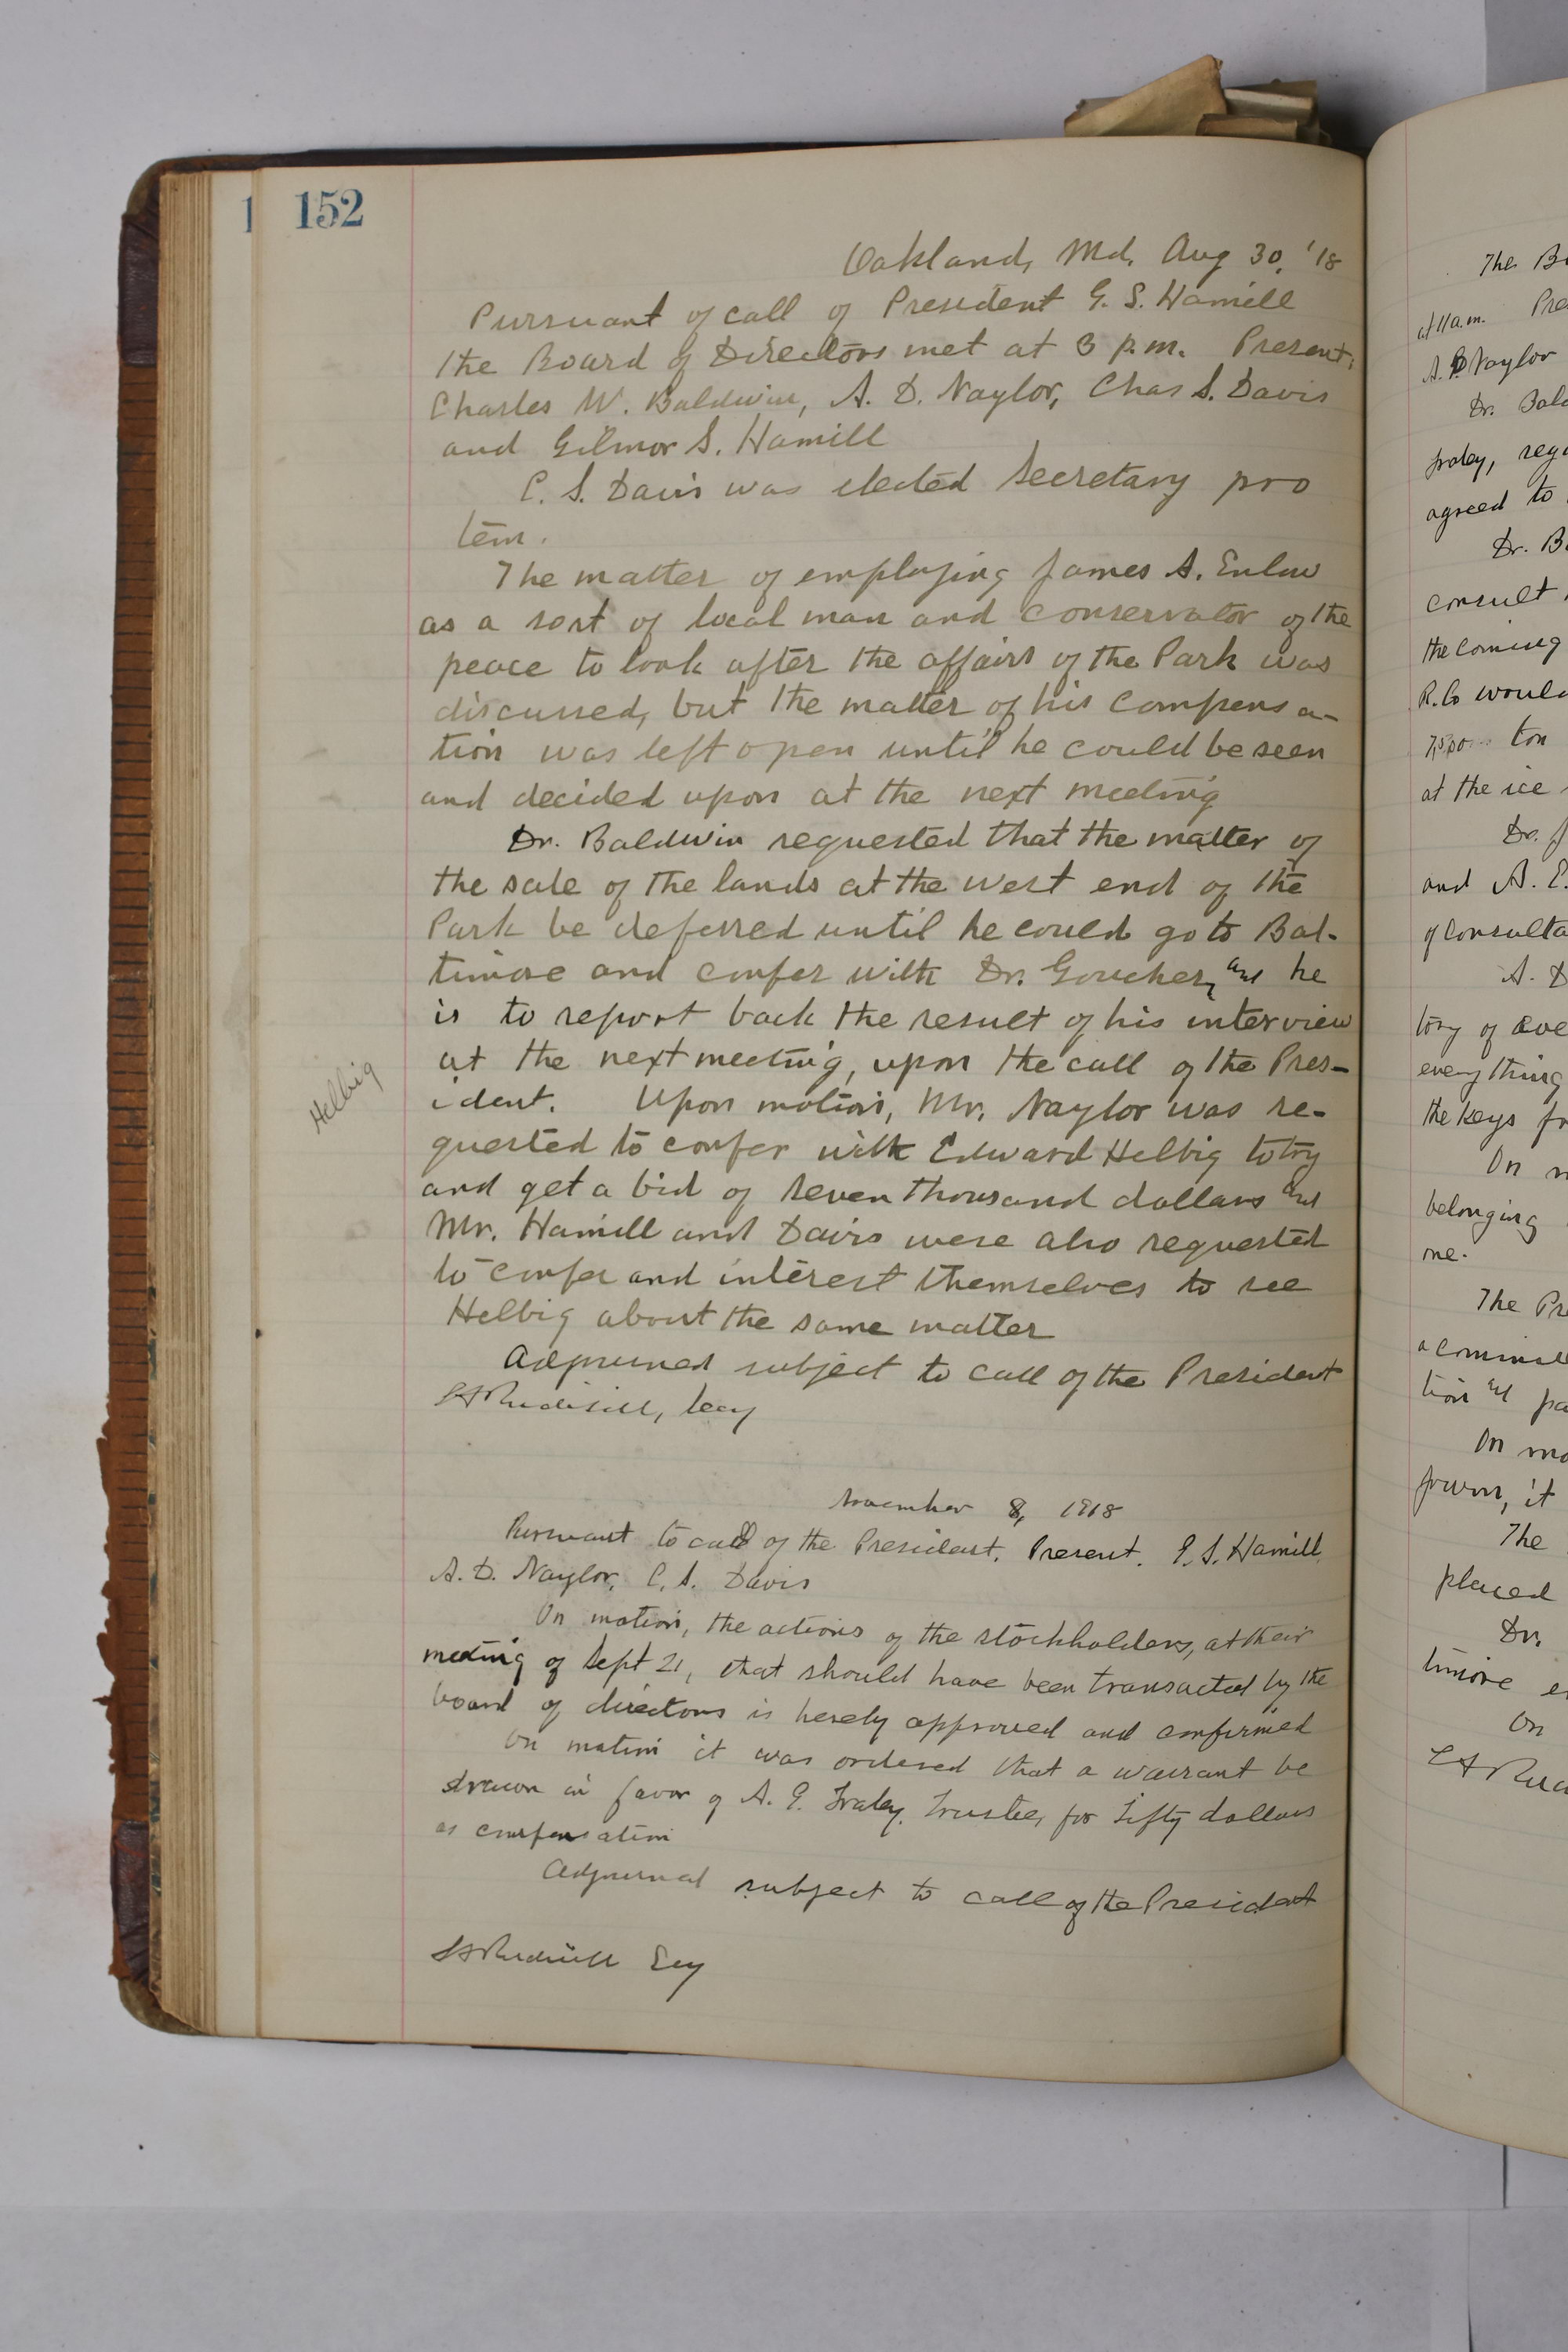 1 152
Oakland, Md. Aug 30, '18
Pursuant of call of President G. S. Hamill
the Board of Directors met at 3 p.m. Present,
Charles W. Baldwin, A. D. Naylor, Chas S. Davis
and Gilmor S. Hamill
C. S. Davis was elected Secretary pro
tem.
The matter of employing James A. Enlow
as a sort of local man and conservator of the
peace to look after the affairs of the Park was
discussed, but the matter of his compensa-
tion was left open until he could be seen
and decided upon at the next meeting
Dr. Baldwin requested that the matter of
the sale of the lands at the west end of the
Park be deferred until he could go to Bal-
timore and confer with Dr. Goucher, and he
is to report back the result of his interview
at the next meeting, upon the call of the Pres-
ident. Upon motion, Mr. Naylor was re-
quested to confer with Edward Helbig to try
and get a bid of seven thousand dollars and
Mr. Hamill and Davis were also requested
to confer and interest themselves to see
Helbig about the same matter
Adjourned subject to call of the President
Rudisill, Secy
Helbig
November 8, 1918
Pursuant to call of the President. Present. G. S. Hamill,
A. D. Naylor, C. S. Davis
On motion, the actions of the stockholders, at their
meeting of Sept 21, that should have been transacted by the
board of directors is hereby approved and confirmed
On motion it was ordered that a warrant be
drawn in favor of A. E. Fraley, Trustee, for Fifty dollars
as compensation
Adjourned subject to call of the President
Rudisill Secy
The
at 11 a.m.
A. D. Naylor
Dr.
agreed to
Dr.
consult
the coming
R. Co would
ton
at the ice
Dr.
and A. E.
of
A.
tory of
everything
the keys
On
belonging
me.
The
a
tion and
On
it
The
placed
Dr.
On